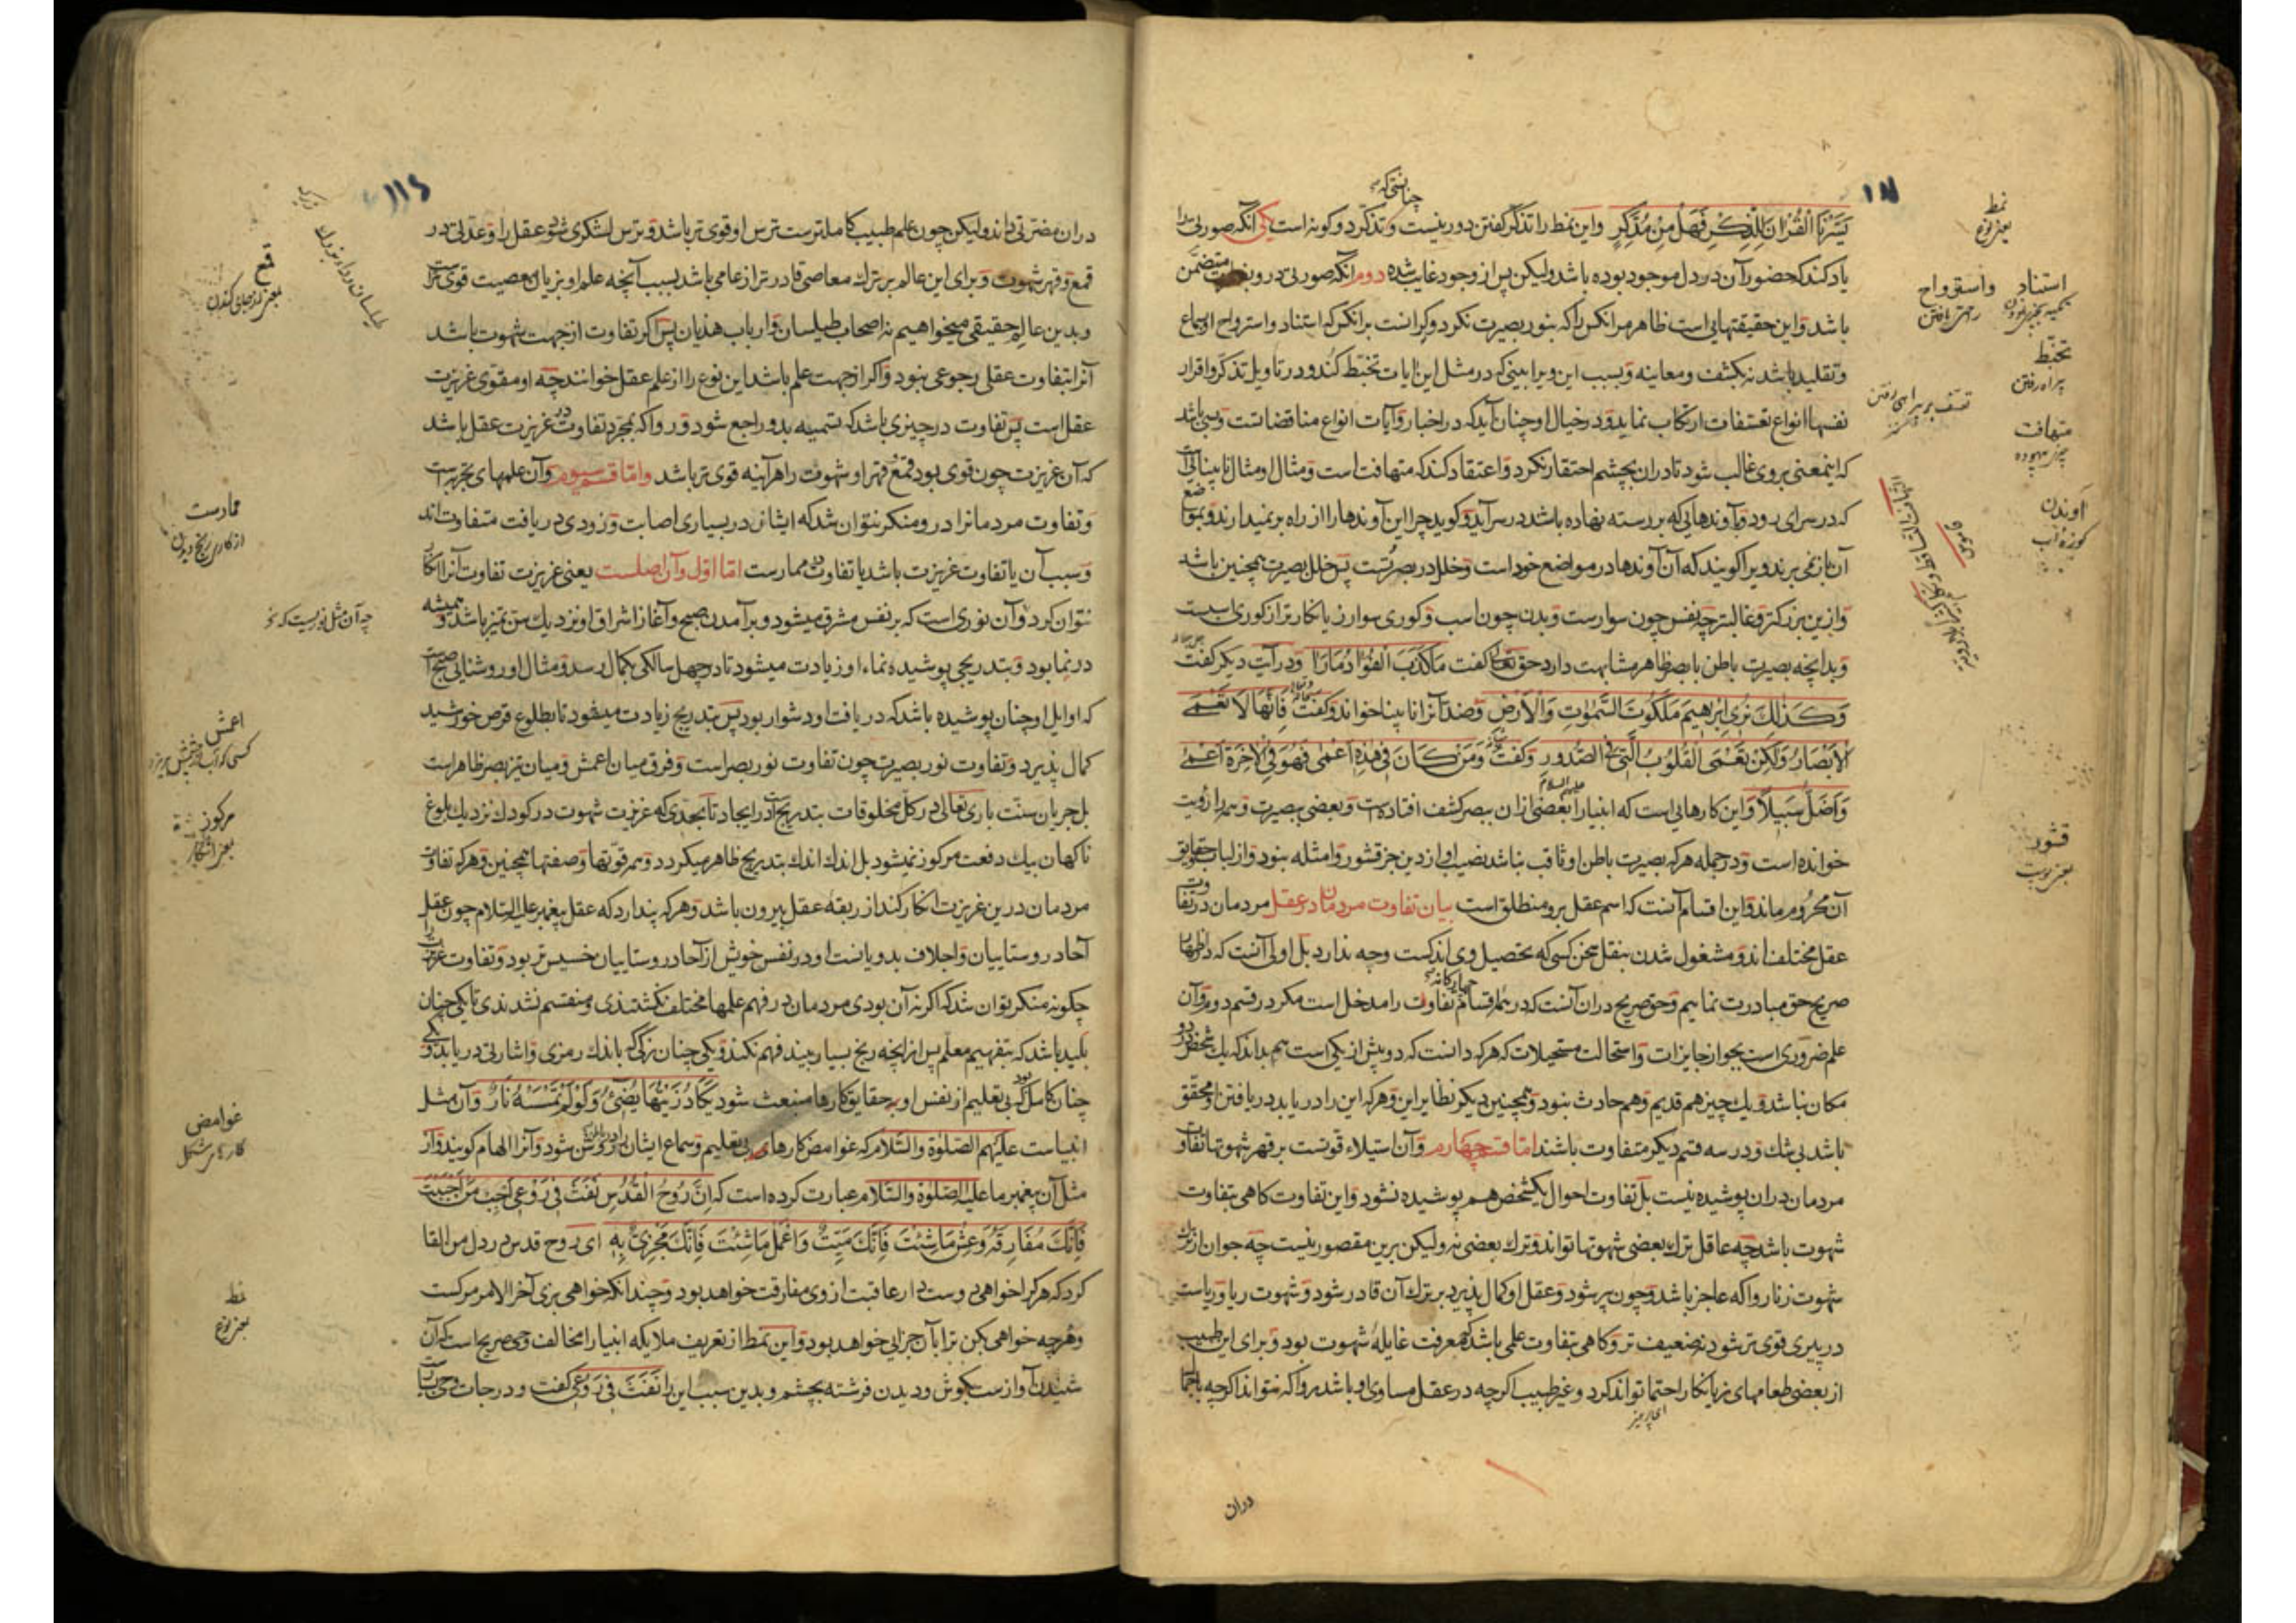 یَسَّرْنَا الْقُرْآنَ لِلذِّكْرِ فَهَلْ مِنْ مُدَّكِرٍ واین نمط را تذکر گفتن دور نیست و تذکر دو کونه است یکی آنکه صورتی را
یاد کند که حضور آن در دل موجود بوده باشد ولیکن پس از وجود غایب شده دوم آنکه صورتی در وی متضمن
باشد و این حقیقتهایی است ظاهر مر آنکس را که بنور بصیرت نکرد و کرانست بر آنکس که استناد و استرواح او بسماع
و تقلید باشد نه بکشف و معاینه و بسبب این ویرا بینی که در مثل این آیات تخبط کند و در تاویل تذکر و اقرار
نفسها انواع تعسفات ارتکاب نماید و در خیال او چنان آید که در اخبار و آیات انواع مناقضاتست و بسی باشد
که اینمعنی بر وی غالب شود تا در آن بچشم احتقار نکرد و اعتقاد کند که متهافت است و مثال او مثال نابینایی است
که در سرای رود و آوندهایی که بر رسته نهاده باشد در سر آید و کوید چرا این آوندها را از راه بر نمیدارند و بموضع
آن باز نمی برند ویرا کویند که آن آوندها در مواضع خود است و خلل در بصر تست پس خلل بصیرت همچنین باشد
و ازین بزرکتر و غالبتر چه نفس چون سوار ست و بدن چون اسب و کوری سوار زیانکارتر از کوری اسبست
و بدانچه بصیرت باطن با بصر ظاهر مشابهت دارد حق تعالی کفت مَا كَذَبَ الْفُؤَادُ مَا رَأَى و در آیت دیکر کفت
وَكَذَلِكَ نُرِي إِبْرَاهِيمَ مَلَكُوتَ السَّمَوَاتِ وَالْأَرْضِ و ضد آنرا نابینا خواند و کفت فَإِنَّهَا لَا تَعْمَى
الْأَبْصَارُ وَلَكِنْ تَعْمَى الْقُلُوبُ الَّتِي فِي الصُّدُورِ و کفت وَمَنْ كَانَ فِي هَذِهِ أَعْمَى فَهُوَ فِي الْآخِرَةِ أَعْمَى
وَأَضَلُّ سَبِيلًا و این کارهایی است که انبیا را علیهم السلام بعضی از آن ببصر کشف افتاده است و بعضی ببصیرت و همه را رؤیت
خوانده است و در جمله هر که بصیرت باطن او ثاقب نباشد نصیب او از دین جز قشور و امثله نبود و از لباب و حقایق
آن محروم ماند و این اقسام آنست که اسم عقل برو منطلق است بیان تفاوت مردمان در عقل مردمان در تفاوت
عقل مختلف اند و مشغول شدن بنقل سخن کسی که تحصیل وی اندکست وجه ندارد بل اولی آنست که در اظهار
صریح حق مبادرت نماییم و حق صریح در آن آنست که در همه اقسام چهارکانه تفاوت را مدخل است مکر در قسم دوم و آن
علم ضروری است بجواز جایزات و استحالت مستحیلات که هر که دانست که دو بیش از یکی است هم بداند که یک شخص در دو
مکان نباشد و یک چیز هم قدیم و هم حادث نبود و همچنین دیکر نظایر این و هر که این را در یابد دریافتن او محقق
باشد بی شک و در سه قسم دیکر متفاوت باشند اما قسم چهارم و آن استیلاء قوتست بر قهر شهوتها تفاوت
مردمان در آن پوشیده نیست بل تفاوت احوال یکشخص هم پوشیده نشود و این تفاوت کاهی بتفاوت
شهوت باشد چه عاقل ترک بعضی شهوتها تواند و ترک بعضی نه ولیکن برین مقصور نیست چه جوان از ترک
شهوت زنا روا که عاجز باشد و چون پیر شود و عقل او کمال پذیرد بر ترک آن قادر شود و شهوت ریا و ریاست
در پیری قوی تر شود نه ضعیف تر و کاهی بتفاوت علمی باشد که معرفت غایله شهوت بود و برای این طبیب
از بعضی طعامهای زیانکار احتما تواند کرد و غیر طبیب اکرچه در عقل مساوی او باشد روا که نتواند اکرچه باجماله
دران
نمط
یعنی نوع
استناد واستورواح
تخبط
بیراه رفتن
متهافت
آوندن
کوزه آب
قشور
یعنی پوست
۱۱۵
در آن مضرتی داند ولیکن چون علم طبیب کاملترست ترس او قوی تر باشد و ترس لشکری شود عقل را و عدتی در
قمع و قهر شهوت و برای این عالم بر ترک معاصی قادر تر از عامی باشد بسبب آنچه علم او بزیان معصیت قوی تر است
و بدین عالم حقیقی میخواهیم نه اصحاب طیلسان و ارباب هذیان پس اکر تفاوت از جهت شهوت باشد
آنرا بتفاوت عقلی رجوعی نبود و اکر از جهت علم باشد این نوع را از علم عقل خوانند چه او مقوی غریزت
عقل است پس تفاوت در چیزی باشد که تسمیه بدو راجع شود و روا که بمجرد تفاوت در غریزت عقل باشد
که آن غریزت چون قوی بود قمع و قهر او شهوت را هرآینه قوی تر باشد واما قسم سوم و آن علمهای تجربه است
و تفاوت مردمان را درو منکر نتوان شد که ایشان در بسیاری اصابت و زودی دریافت متفاوت اند
و سبب آن یا تفاوت غریزت باشد یا تفاوت در ممارست اما اول و آن اصلست یعنی غریزت تفاوت آنرا انکار
نتوان کرد و آن نوری است که بر نفس مشرق میشود و بر آمدن صبح و آغاز اشراق او نزدیک سن تمیز باشد و همیشه
در نما بود و بتدریجی پوشیده نماء او زیادت میشود تا در چهل سالکی بکمال رسد و مثال او روشنایی صبح است
که اوایل او چنان پوشیده باشد که دریافت او دشوار بود پس بتدریج زیادت میشود تا بطلوع قرص خورشید
کمال پذیرد و تفاوت نور بصیرت چون تفاوت نور بصر است و فرق میان اعمش و میان تیزبصر ظاهر است
بل جریان سنت باری تعالی در کل مخلوقات بتدریج است در ایجاد تا بحدی که غریزت شهوت در کودک نزدیک بلوغ
ناکهان بیک دفعت مرکوز نمیشود بل اندک اندک بتدریج ظاهر میکردد و همه قوتها و صفتها همچنین و هر که تفاوت
مردمان درین غریزت انکار کند از ربقه عقل بیرون باشد و هر که پندارد که عقل پیغمبر علیه السلام چون عقل
آحاد روستاییان و اجلاف بدویانست او در نفس خویش از آحاد روستاییان خسیس تر بود و تفاوت غریزت را
چکونه منکر توان شد که اکر نه آن بودی مردمان در فهم علمها مختلف نکشتندی و منقسم نشدندی تا یکی چنان
بلید باشد که بتفهیم معلم پس از آنچه رنج بسیار بیند فهم نکند و یکی چنان زکی که باندک رمزی و اشارتی دریابد و یکی
چنان کامل بود که بی تعلیم از نفس او حقایق کارها منبعث شود یَكَادُ زَيْتُهَا يُضِيءُ وَلَوْ لَمْ تَمْسَسْهُ نَارٌ و آن مثل
انبیاست علیهم الصلوة والسلام که غوامض کارهای بی تعلیم و سماع ایشان را در باطن روشن شود و آنرا الهام کویند و از
مثل آن پیغمبر ما علیه الصلوة والسلام عبارت کرده است که إِنَّ رُوحَ الْقُدُسِ نَفَثَ فِي رَوْعِي أَحْبِبْ مَنْ أَحْبَبْتَ
فَإِنَّكَ مُفَارِقُهُ وَعِشْ مَا شِئْتَ فَإِنَّكَ مَيِّتٌ وَاعْمَلْ مَا شِئْتَ فَإِنَّكَ مَجْزِيٌّ بِهِ ای روح قدس در دل من القا
کرد که هر کرا خواهی دوست دار عاقبت از وی مفارقت خواهد بود و چندانکه خواهی بزی آخر الامر مرکست
و هر چه خواهی بکن ترا بآن جزایی خواهد بود و این نمط از تعریف ملایکه انبیا را مخالف وحی صریح است که آن
شنیدن آوازست بکوش و دیدن فرشته بچشم و بدین سبب این را نَفَثَ فِي رَوْعِي کفت و درجات وحی بسیارست
قمع
ممارست
چه آن مثل نوریست که بر
اعمش
مرکوز
یعنی آشکار
غوامض
کارهای مشکل
نمط
یعنی نوع